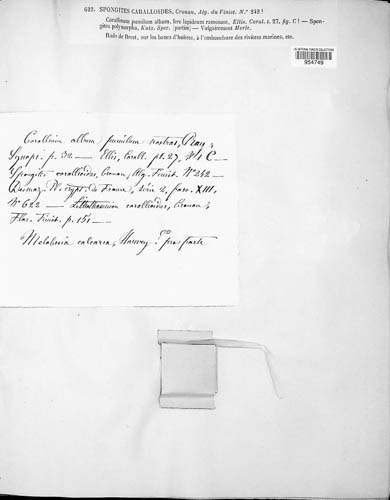 622. SPONGITES CARALLOIDES, Crouan, Alg. du Finist. N.° 242!
Corallium pumilum album, fere lapideum ramosum, Ellis, Coral. t. 27, fig. C! — Spon-
gites polymorpha, Kutz. Spec. (partim) — Vulgairement Merle.
Rade de Brest, sur les bancs d'huitres, à l'embouchure des rivières marines, etc.
954749
Corallium album pumilum nostras, Ray,
Synops. p. 32 — Ellis, Corall. pl. 27, C —
Spongites corallioides, Crouan, Alg. Finist. N° 242 —
Desmaz. Pl. crypt. de France, série 2, fasc. XIII,
N° 622 — Lithothamnion corallioides, Crouan,
Flor. Finist. p. 151 —
Melobesia calcarea, Harvey pro parte